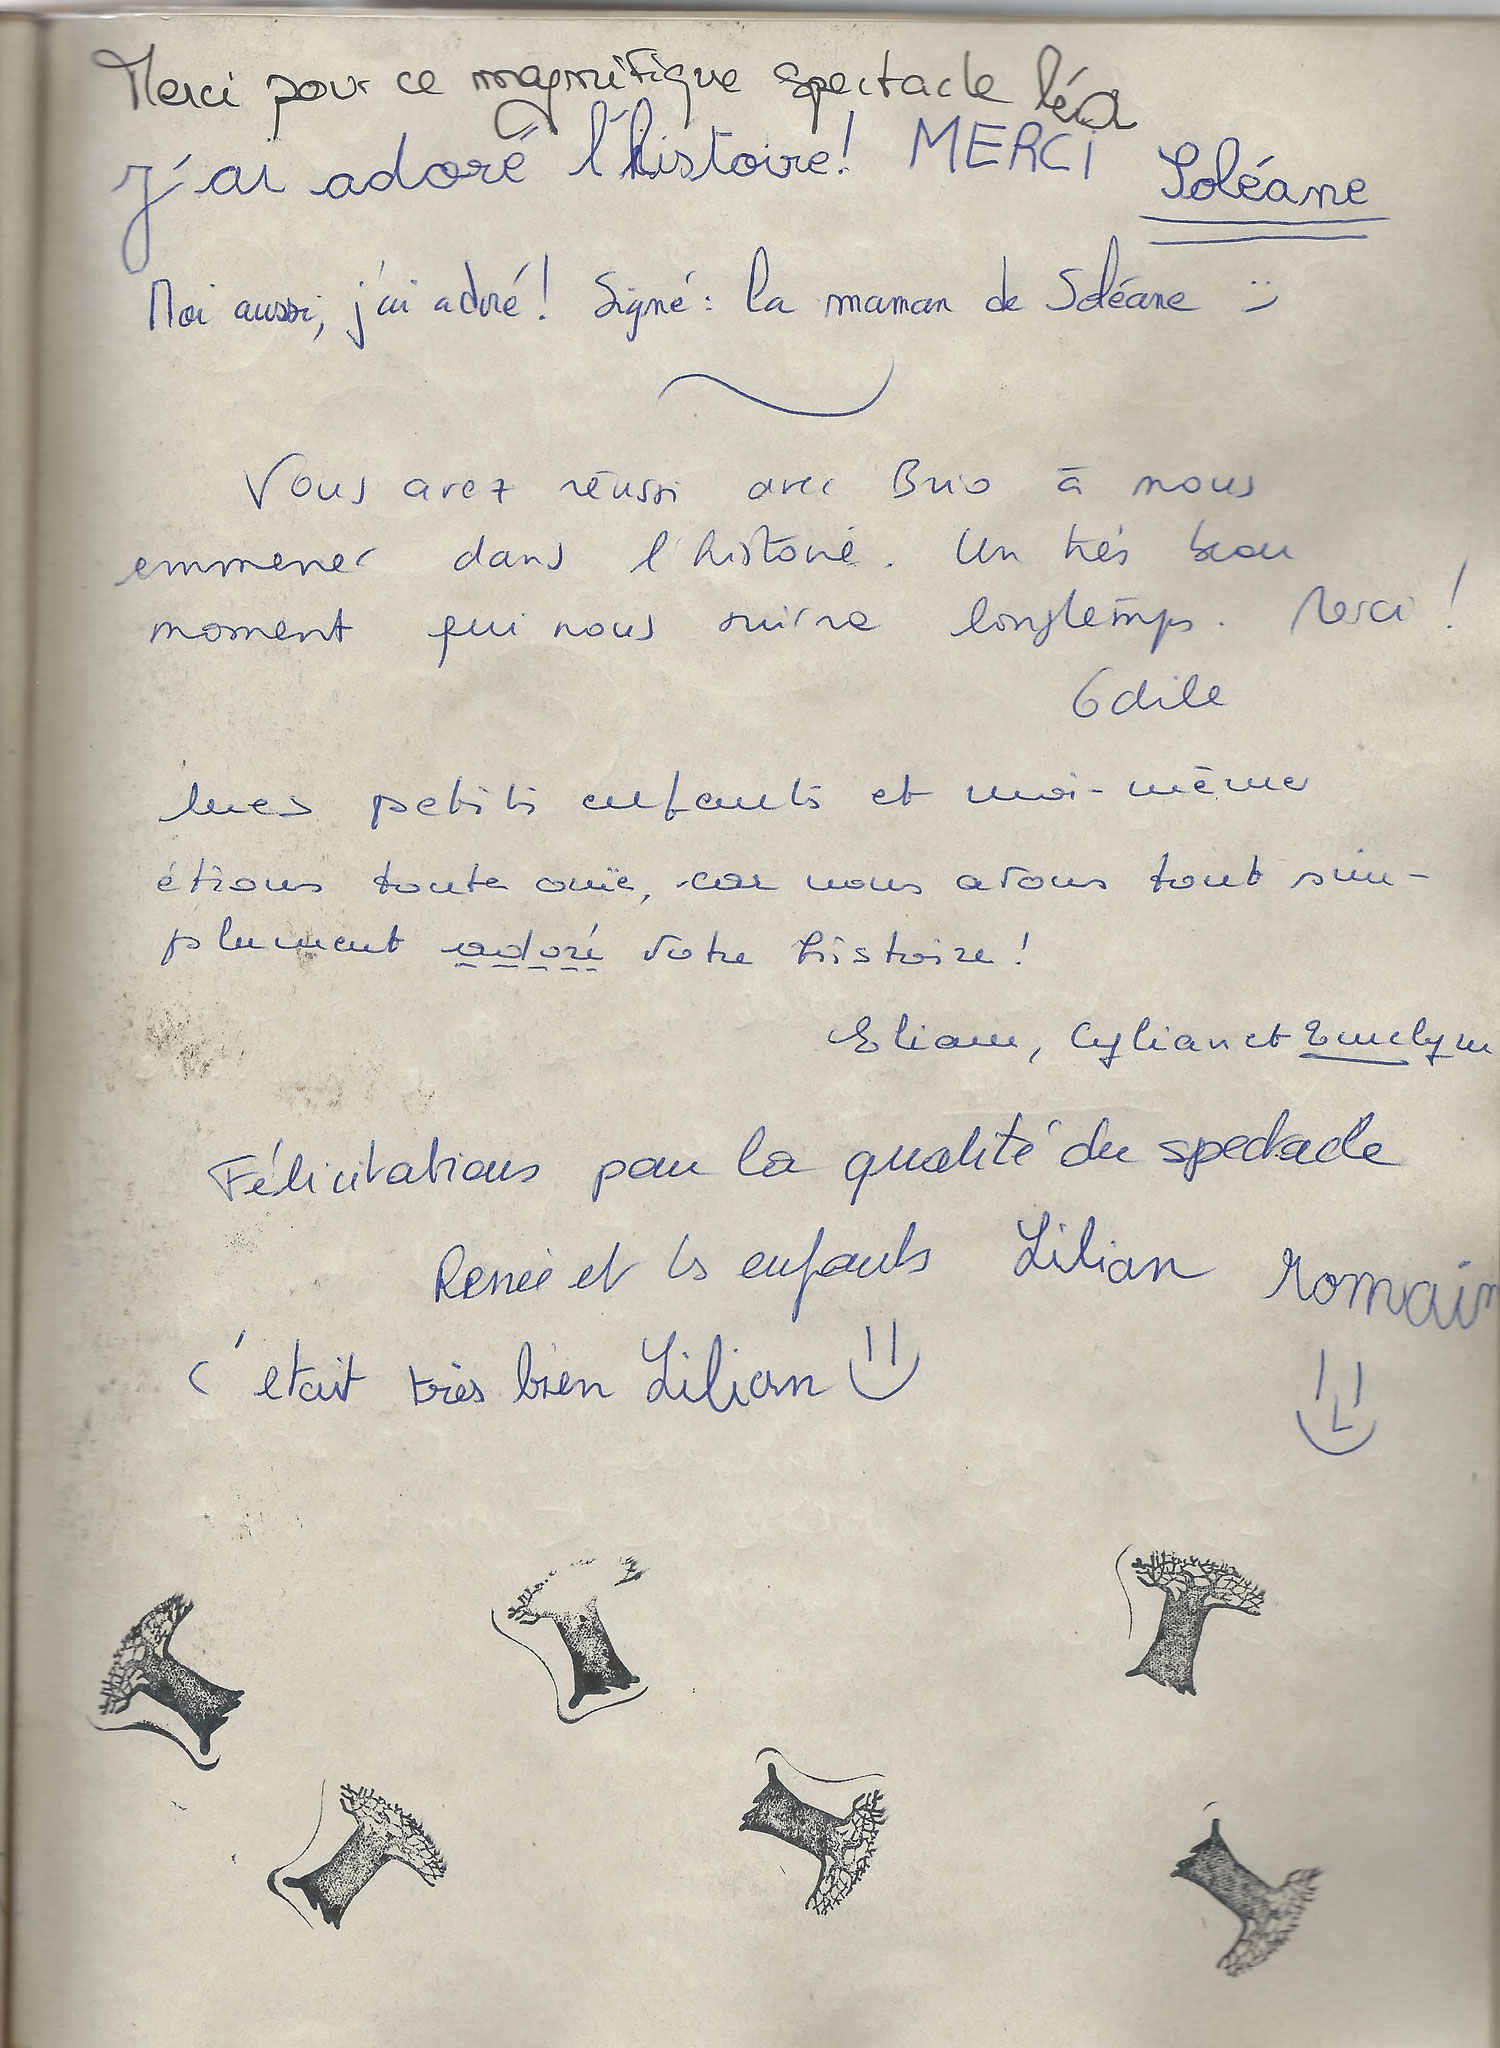 Merci pour ce magnifique spectacle léa
J'ai adoré l'histoire! MERCI Soléane
Moi aussi, j'ai adoré! Signé: la maman de Soléane :)
Vous avez réussi avec Brio à nous
emmener dans l'histoire. Un très beau
moment qui nous suivra longtemps. Merci!
Odile
mes petits enfants et moi-même
étions toute ouïe, car nous avons tout sim-
plement adoré votre histoire!
Eliane, Cylian et Emelyne
Félicitations pour la qualité du spectacle
Renée et ls enfants Lilian romain
c'etait très bien Lilian